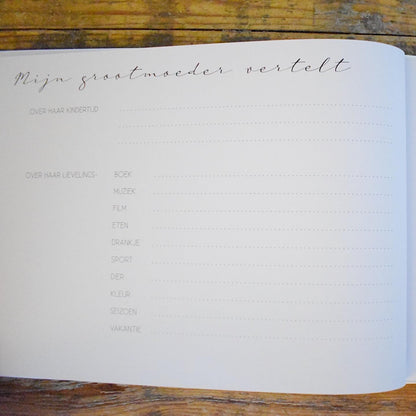 Mijn grootmoeder vertelt
OVER HAAR KINDERTIJD
OVER HAAR LIEVELINGS-
BOEK
MUZIEK
FILM
ETEN
DRANKJE
SPORT
DIER
KLEUR
SEIZOEN
VAKANTIE